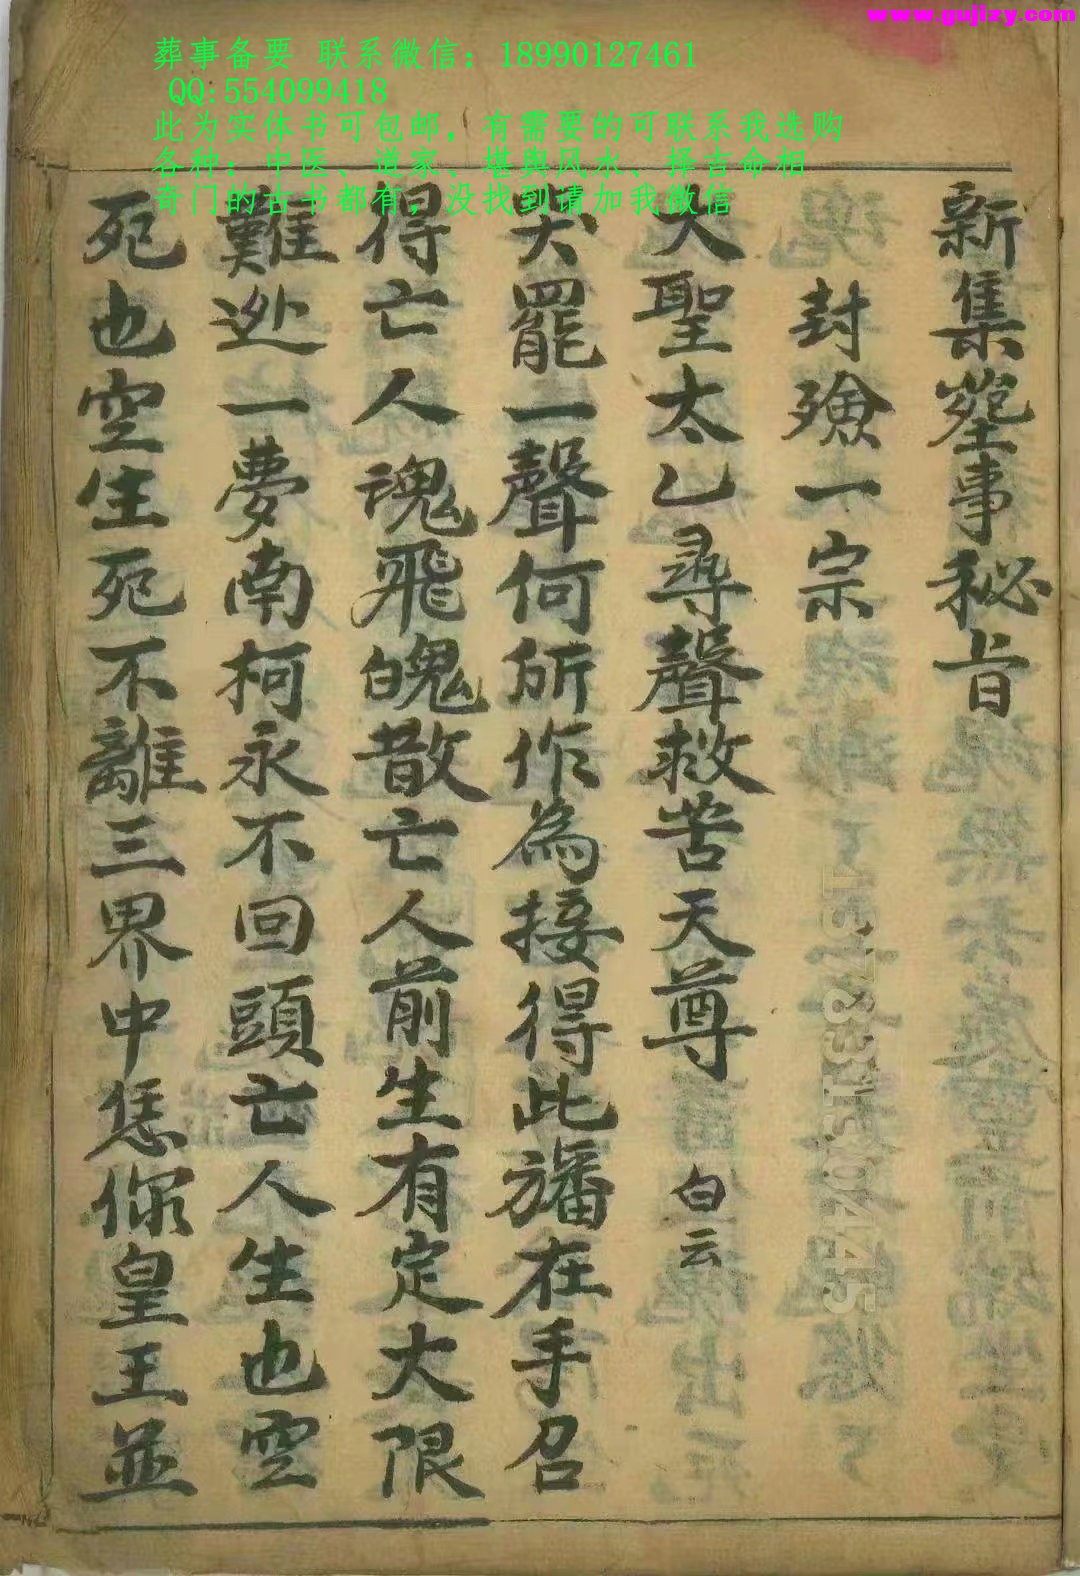 www.gujizy.com
葬事备要 联系微信：18990127461
QQ:554099418
此为实体书可包邮，有需要的可联系我选购
各种：中医、道家、堪舆风水、择吉命相
奇门的古书都有，没找到请加我微信
新集塟事秘旨
封殮一宗
大聖太乙尋聲救苦天尊 白云
哭罷一聲何所作為接得此旛在手召
得亡人魂飛魄散亡人前生有定大限
難迯一夢南柯永不回頭亡人生也空
死也空生死不離三界中恁你皇王並